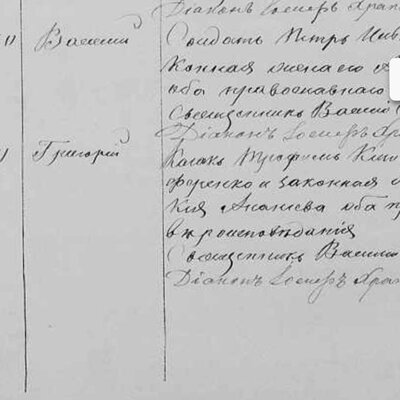 Діаконъ Іосифъ Храп
Василій
Солдатъ Петръ Ив
конная жена его
оба православнаго
Священникъ Василій
Діаконъ Іосифъ Хра
Григорій
Козакъ Трофимъ Кли
ференко и законная
кія Ананіева оба пр
вѣроисповѣданія
Священникъ Василі
Діаконъ Іосифъ Храп